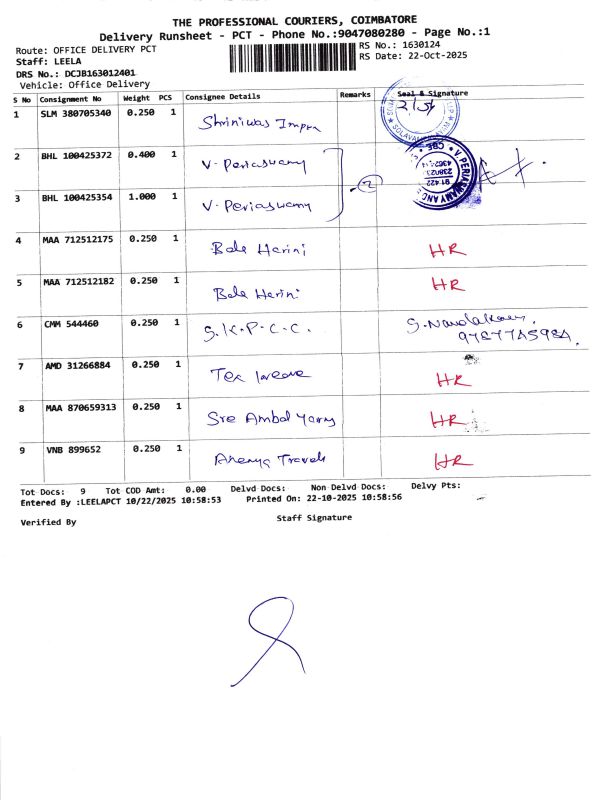 THE PROFESSIONAL COURIERS, COIMBATORE
Delivery Runsheet - PCT - Phone No.:9047080280 - Page No.:1
Route: OFFICE DELIVERY PCT
RS No.: 1630124
Staff: LEELA
RS Date: 22-Oct-2025
DRS No.: DCJB163012401
Vehicle: Office Delivery
S No Consignment No Weight PCS Consignee Details Remarks Seal & Signature
1 SLM 380705340 0.250 1 Shriniwas
2 BHL 100425372 0.400 1 V. Periaswamy
3 BHL 100425354 1.000 1 V. Periaswamy 2
4 MAA 712512175 0.250 1 Bala Harini HR
5 MAA 712512182 0.250 1 Bala Harini HR
6 CMM 544460 0.250 1 S.K.P.C.C.
7 AMD 31266884 0.250 1 Tex HR
8 MAA 870659313 0.250 1 Sre Ambal Yarns HR
9 VNB 899652 0.250 1 Travels HR
Tot Docs: 9 Tot COD Amt: 0.00 Delvd Docs: Non Delvd Docs: Delvy Pts:
Entered By :LEELAPCT 10/22/2025 10:58:53 Printed On: 22-10-2025 10:58:56
Verified By Staff Signature